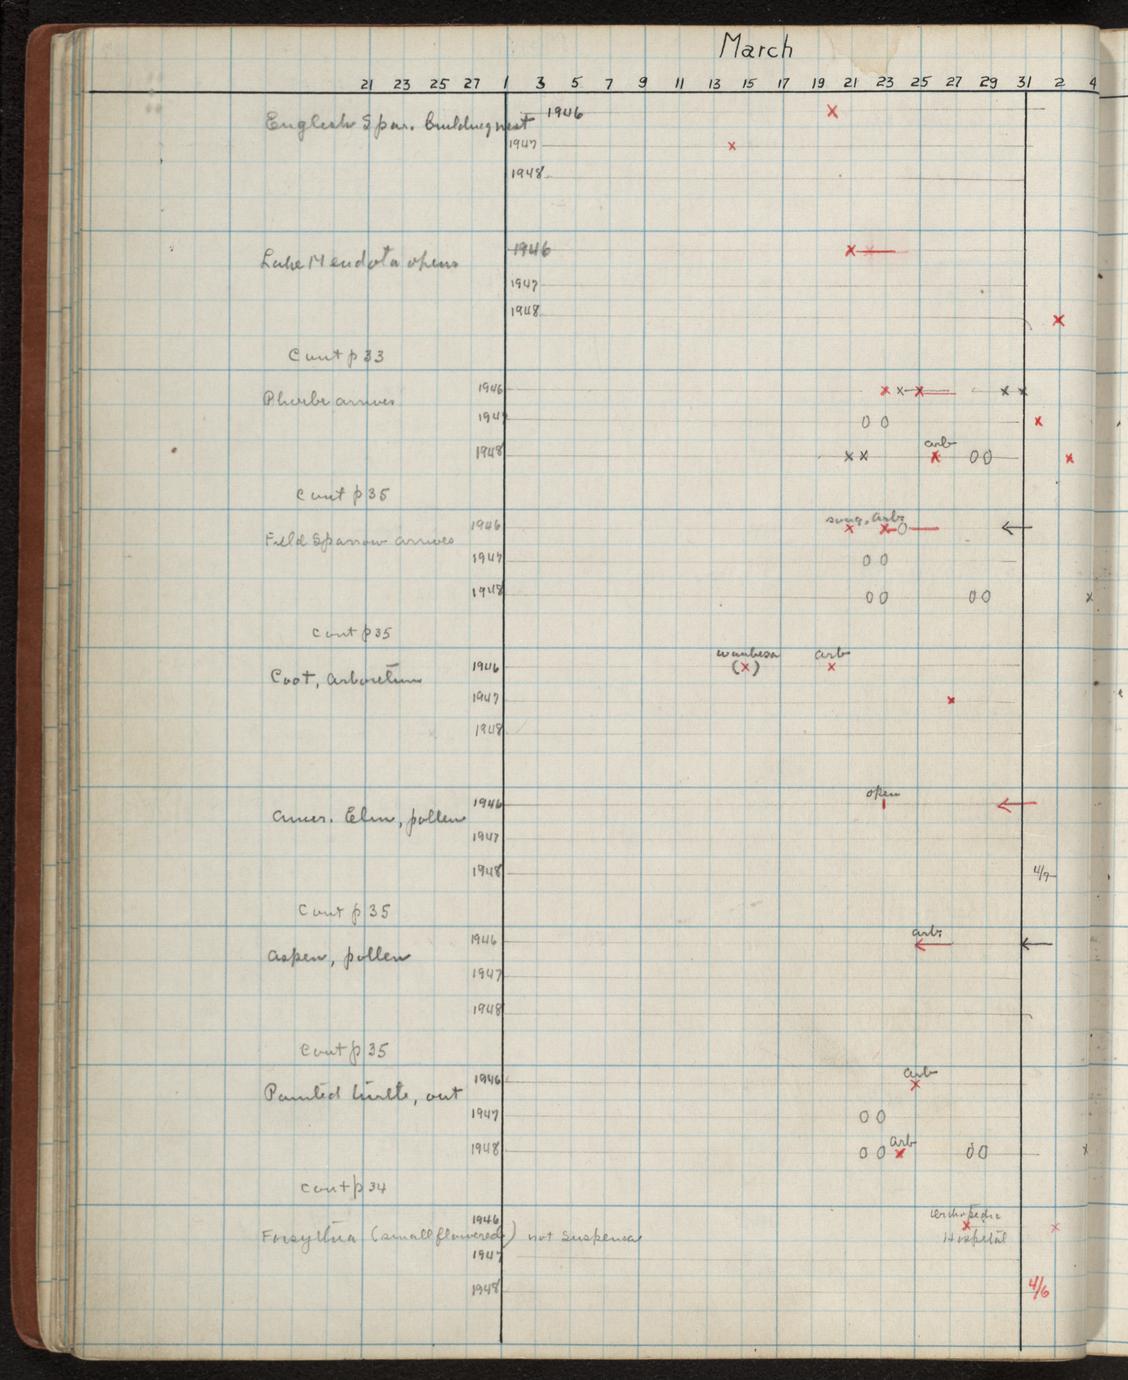 March
21 23 25 27 1 3 5 7 9 11 13 15 17 19 21 23 25 27 29 31 2 4
English Spar. building nest 1946 x
1947 x
1948
Lake Mendota opens 1946 x x
1947
1948 x
Cont p 33
Phoebe arrives 1946 x x x x x
1947 0 0 x
arb
1948 x x x 0 0 x
Cont p 35
song, arb.
Field Sparrow arrives 1946 x x 0 ←
1947 0 0
1948 0 0 0 0 x
Cont p 35
waubesa arb
Coot, arboretum 1946 (x) x
1947 x
1948
open
Amer. Elm, pollen 1946 ←
1947
1948 4/7
Cont p 35
arb.
Aspen, pollen 1946 ← ←
1947
1948
Cont p 35
arb
Painted turtle, out 1946 x
1947 0 0
arb
1948 0 0 x 0 0 x
Cont p 34
Orthopedic
1946 x x
Forsythia (small flowered) not suspensa Hospital
1947
1948 4/6